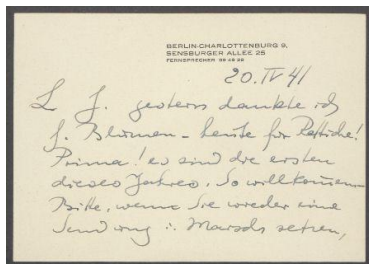 BERLIN-CHARLOTTENBURG 9,
SENSBURGER ALLEE 25
FERNSPRECHER
20. IV 41
L. J. gestern dankte ich
f. Blumen – heute für Rettiche!
Prima! es sind die ersten
dieses Jahres. So willkommen
Bitte, wenn Sie wieder eine
Sendung i. Marsch setzen,